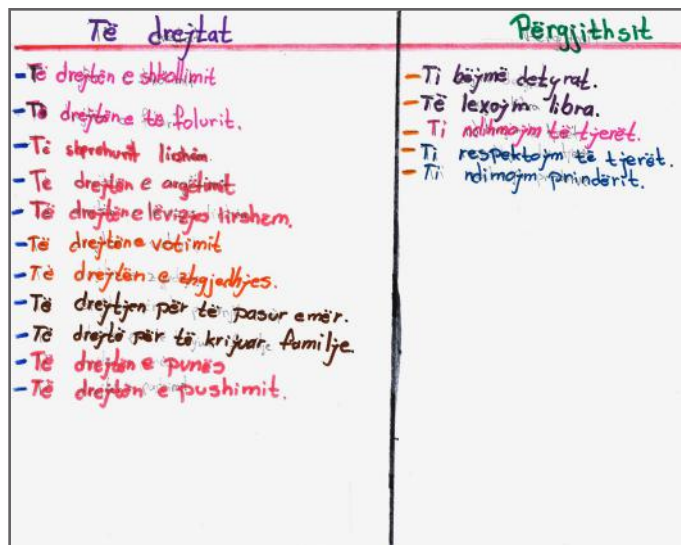 Të drejtat
-Të drejtën e shkollimit
-Të drejtën e të folurit.
-Të shprehurit lirshëm.
-Të drejtën e argëtimit
-Të drejtën e lëvizjes lirshem.
-Të drejtën e votimit
-Të drejtën e zhgjedhjes.
-Të drejtjen për të pasur emër.
-Të drejtë për të krijuar familje
-Të drejtën e punës
-Të drejtën e pushimit.
Përgjithsit
-Ti bëjmë detyrat.
-Të lexojm libra.
-Ti ndihmojm të tjerët.
-Ti respektojm të tjerët.
-Ti ndimojm prindërit.